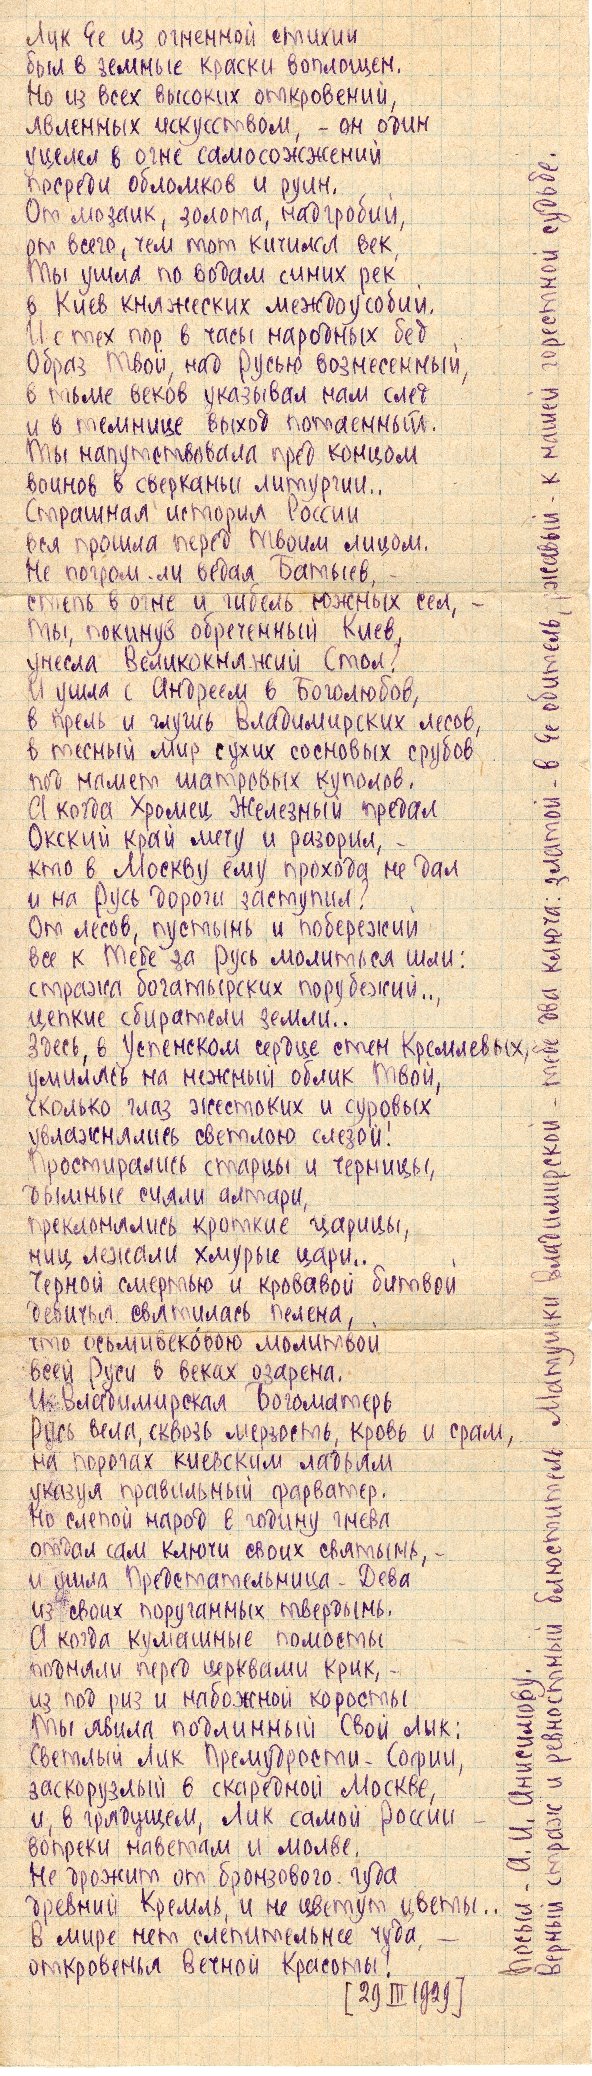 Лик Ее из огненной стихии
был в земные краски воплощен.
Но из всех высоких откровений,
явленных искусством, – он один
уцелел в огне самосожжений
посреди обломков и руин.
От мозаик, золота, надгробий,
от всего, чем тот кичился век,
Ты ушла по водам синих рек
в Киев княжеских междоусобий.
И с тех пор в часы народных бед
Образ Твой, над Русью вознесенный,
в тьме веков указывал нам след
и в темнице выход потаенный.
Ты напутствовала пред концом
воинов в сверканьи литургии..
Страшная история России
вся прошла перед Твоим лицом.
Не погром-ли ведая Батыев, –
степь в огне и гибель южных сел, –
Ты, покинув обреченный Киев,
унесла Великокняжий Стол?
И ушла с Андреем в Боголюбов,
в прель и глушь Владимирских лесов,
в тесный мир сухих сосновых срубов
под намет шатровых куполов.
А когда Хромец Железный предал
Окский край мечу и разорил, –
кто в Москву ему прохода не дал
и на Русь дороги заступил?
От лесов, пустынь и побережий
все к Тебе за Русь молиться шли:
стража богатырских порубежий..,
цепкие сбиратели земли..
Здесь, в Успенском сердце стен Кремлевых,
умилясь на нежный облик Твой,
сколько глаз жестоких и суровых
увлажнялись светлою слезой!
Простирались старцы и черницы,
дымные сияли алтари,
преклонялись кроткие царицы,
ниц лежали хмурые цари..
Черной смертью и кровавой битвой
девичья святилась пелена,
что осьмивековою молитвой
всей Руси в веках озарена.
И Владимирская Богоматерь
Русь вела, сквозь мерзость, кровь и срам,
на порогах киевским ладьям
указуя правильный фарватер.
Но слепой народ в годину гнева
отдал сам ключи своих святынь, –
и ушла Предстательница-Дева
из своих поруганных твердынь.
А когда кумашные помосты
подняли перед церквами крик, –
из под риз и набожной коросты
Ты явила подлинный Свой Лик:
Светлый Лик Премудрости-Софии,
заскорузлый в скаредной Москве,
и, в грядущем, Лик самой России –
вопреки наветам и молве.
Не дрожит от бронзового гуда
древний Кремль, и не цветут цветы..
В мире нет слепительнее чуда –
откровенья Вечной Красоты!
[29 III 1929]
Посыл – А.И. Анисимову.
Верный страж и ревностный блюститель Матушки Владимирской – тебе два ключа: златой – в Ее обитель, ржавый – к нашей горестной судьбе.